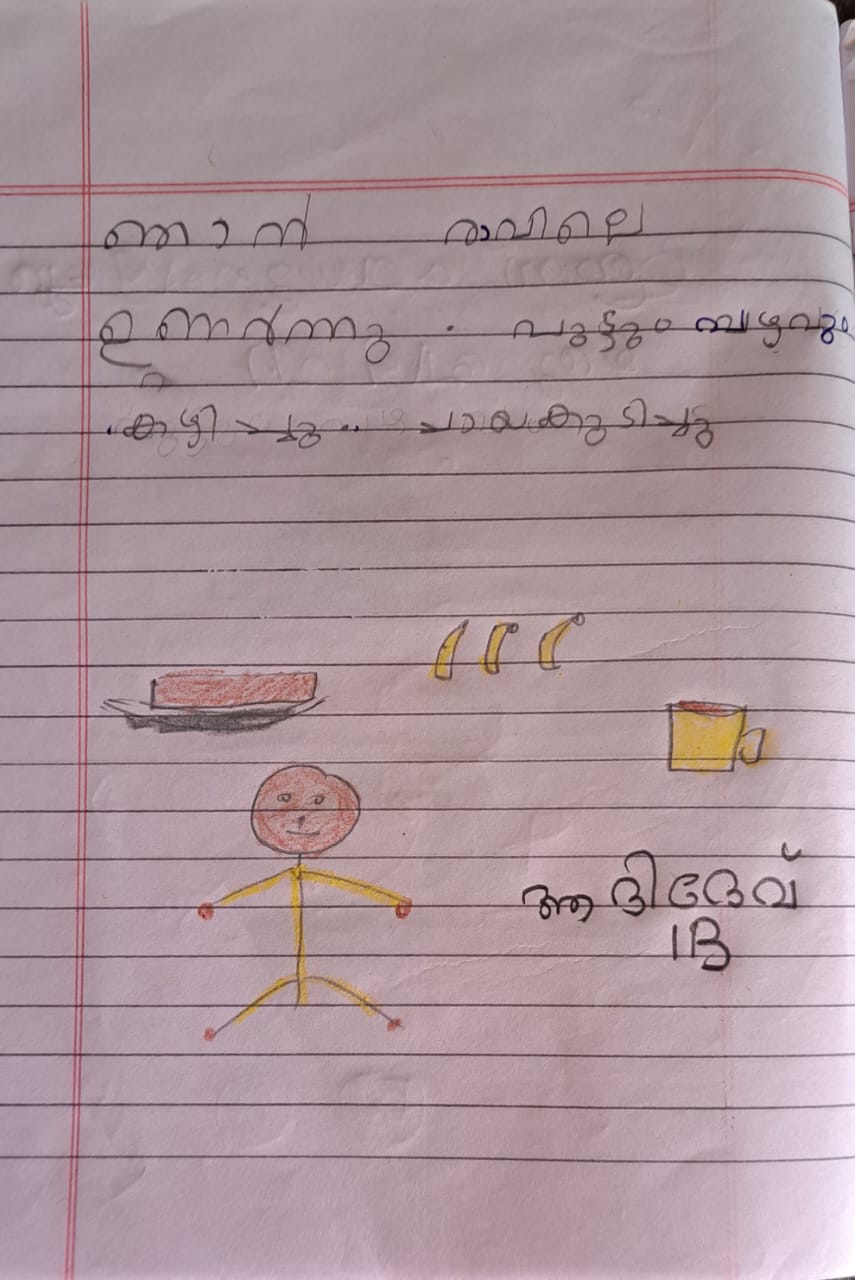 ഞാൻ രാവിലെ
ഉണർന്നു . പുട്ടും പഴവും
കഴിച്ചു .. ചായകുടിച്ചു
ആദിദേവ്
1B